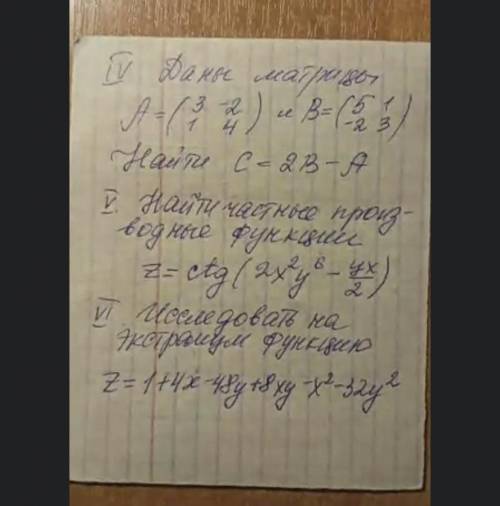 IV Даны матрицы
A = (3 -2
1 4) и B = (5 1
-2 3)
Найти C = 2B - A
V. Найти частные произ-
водные функции
z = ctg (2x²y⁶ - yx/2)
VI Исследовать на
экстремум функцию
z = 1+4x-48y+8xy-x²-32y²